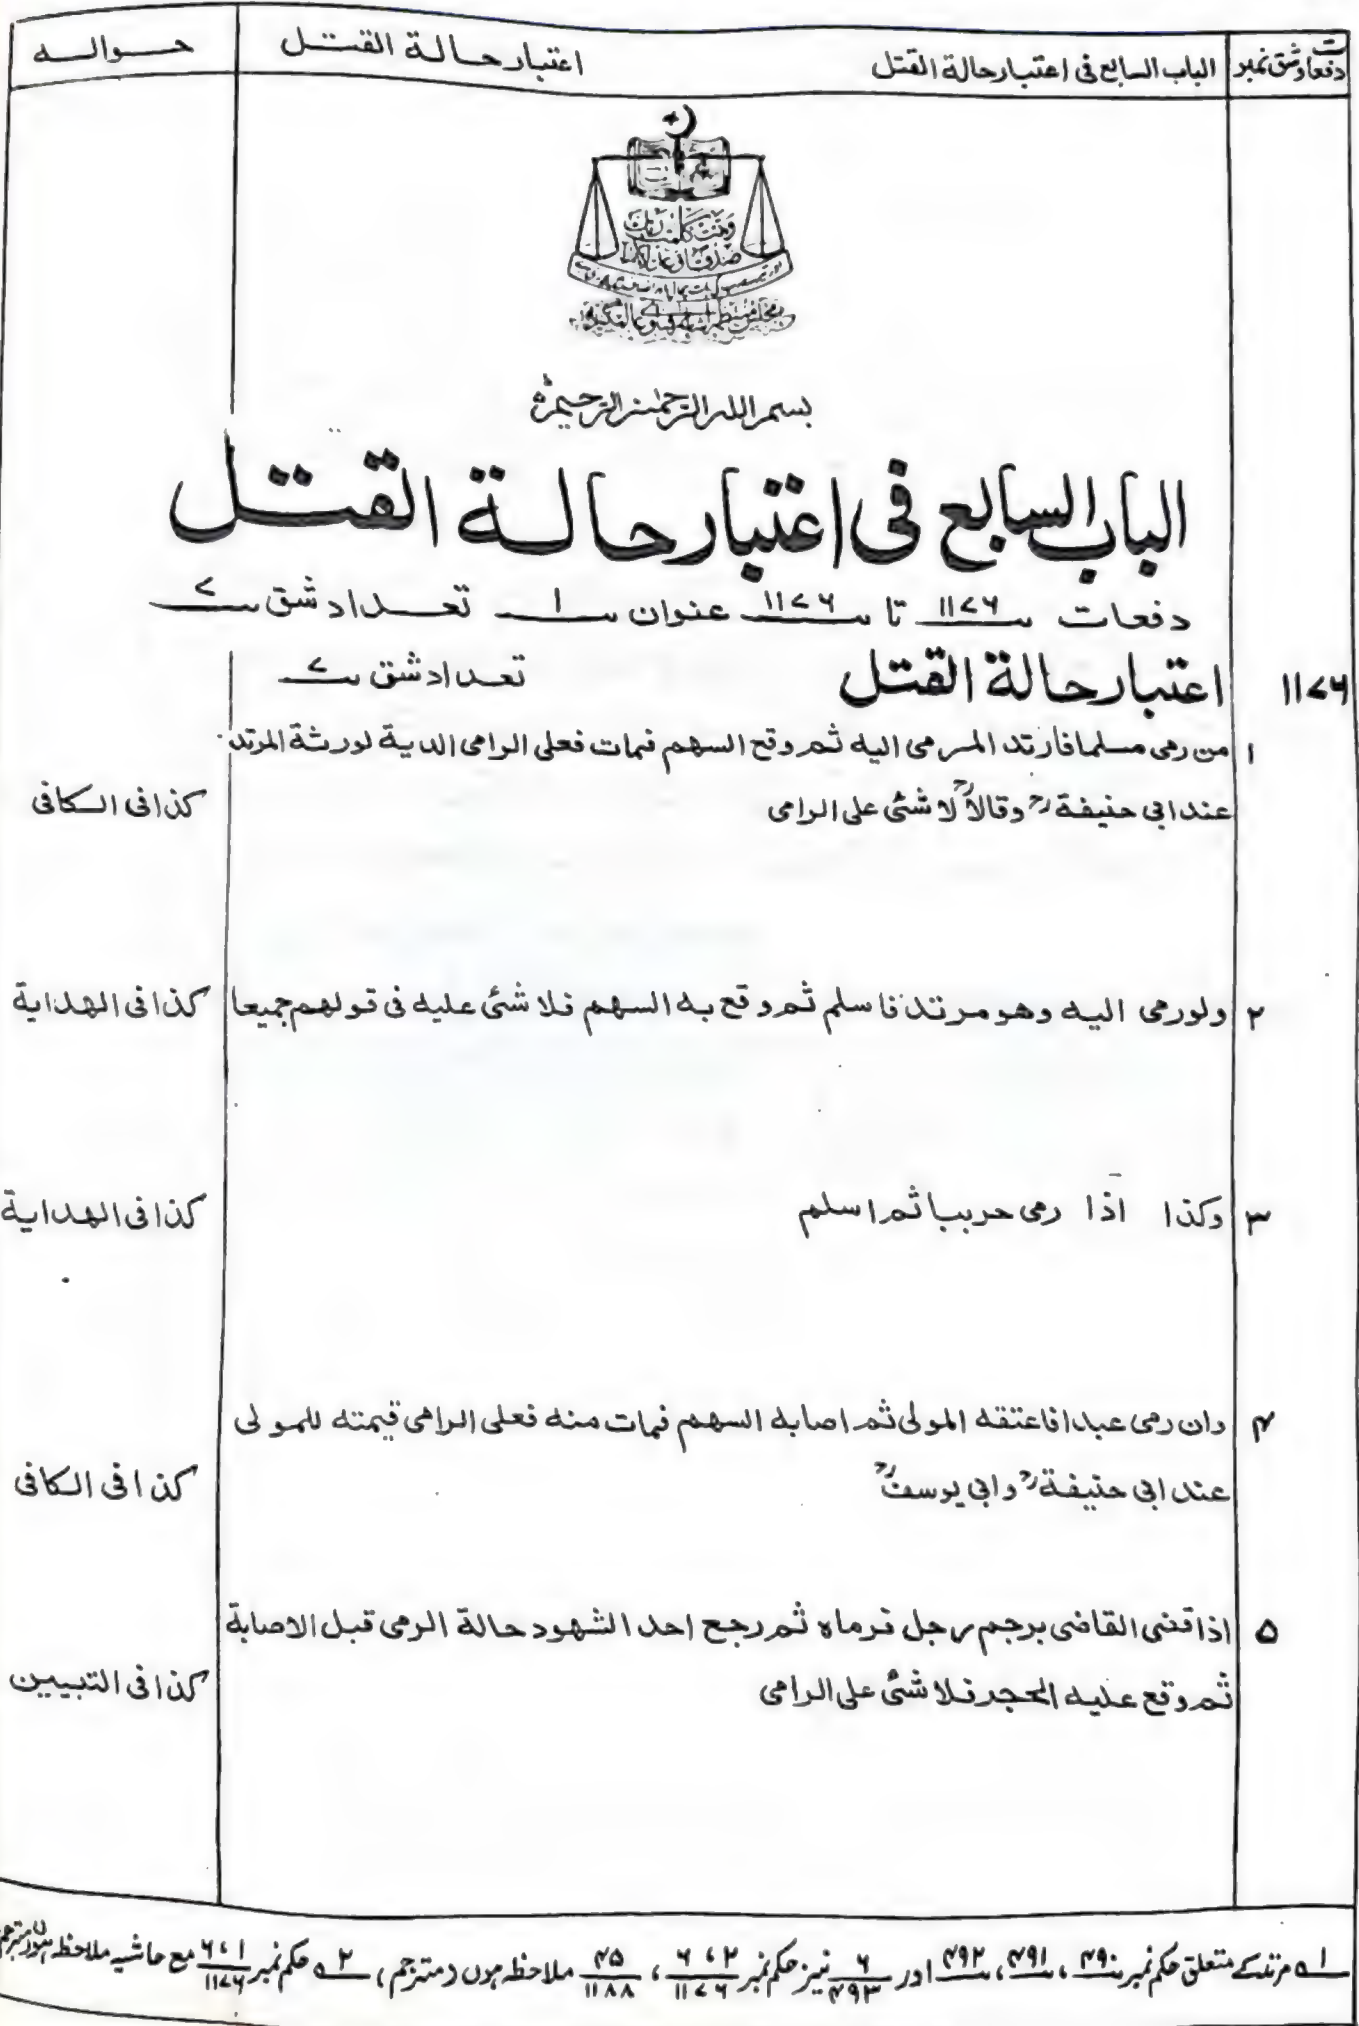 دفعات وشق نمبر الباب السابع فی اعتبار حالة القتل اعتبار حالة القتل حواله
وتمت کلمت ربک
بسم الله الرحمٰن الرحیم
الباب السابع فی اعتبار حالة القتل
دفعات ۱۱۷۶ تا ۱۱۷۶ عنوان ۱ تعداد شق ۷
۱۱۷۶ اعتبار حالة القتل تعداد شق ۷
۱ من رمی مسلما فارتد المرمی الیه ثم وقع السهم فمات فعلی الرامی الدیة لورثة المرتد
عند ابی حنیفةؒ وقالاؒ لا شئ علی الرامی کذا فی الکافی
۲ ولو رمی الیه وهو مرتد فاسلم ثم وقع به السهم فلا شئ علیه فی قولهم جمیعا کذا فی الهدایة
۳ وکذا اذا رمی حربیا ثم اسلم کذا فی الهدایة
۴ وان رمی عبدا فاعتقه المولی ثم اصابه السهم فمات منه فعلی الرامی قیمته للمولی
عند ابی حنیفةؒ وابی یوسفؒ کذا فی الکافی
۵ اذا قضی القاضی برجم رجل فرماه ثم رجع احد الشهود حالة الرمی قبل الاصابة
ثم وقع علیه الحجر فلا شئ علی الرامی کذا فی التبیین
۱؎ مرتد کے متعلق حکم نمبر ۴۹۰، ۴۹۱، ۴۹۲ اور ۶/۴۹۳ نیز حکم نمبر ۲، ۶/۱۱۷۶، ۴۵/۱۱۸۸ ملاحظہ ہوں (مترجم) ۲؎ حکم نمبر ۱، ۶/۱۱۷۶ مع حاشیہ ملاحظہ ہوں (مترجم